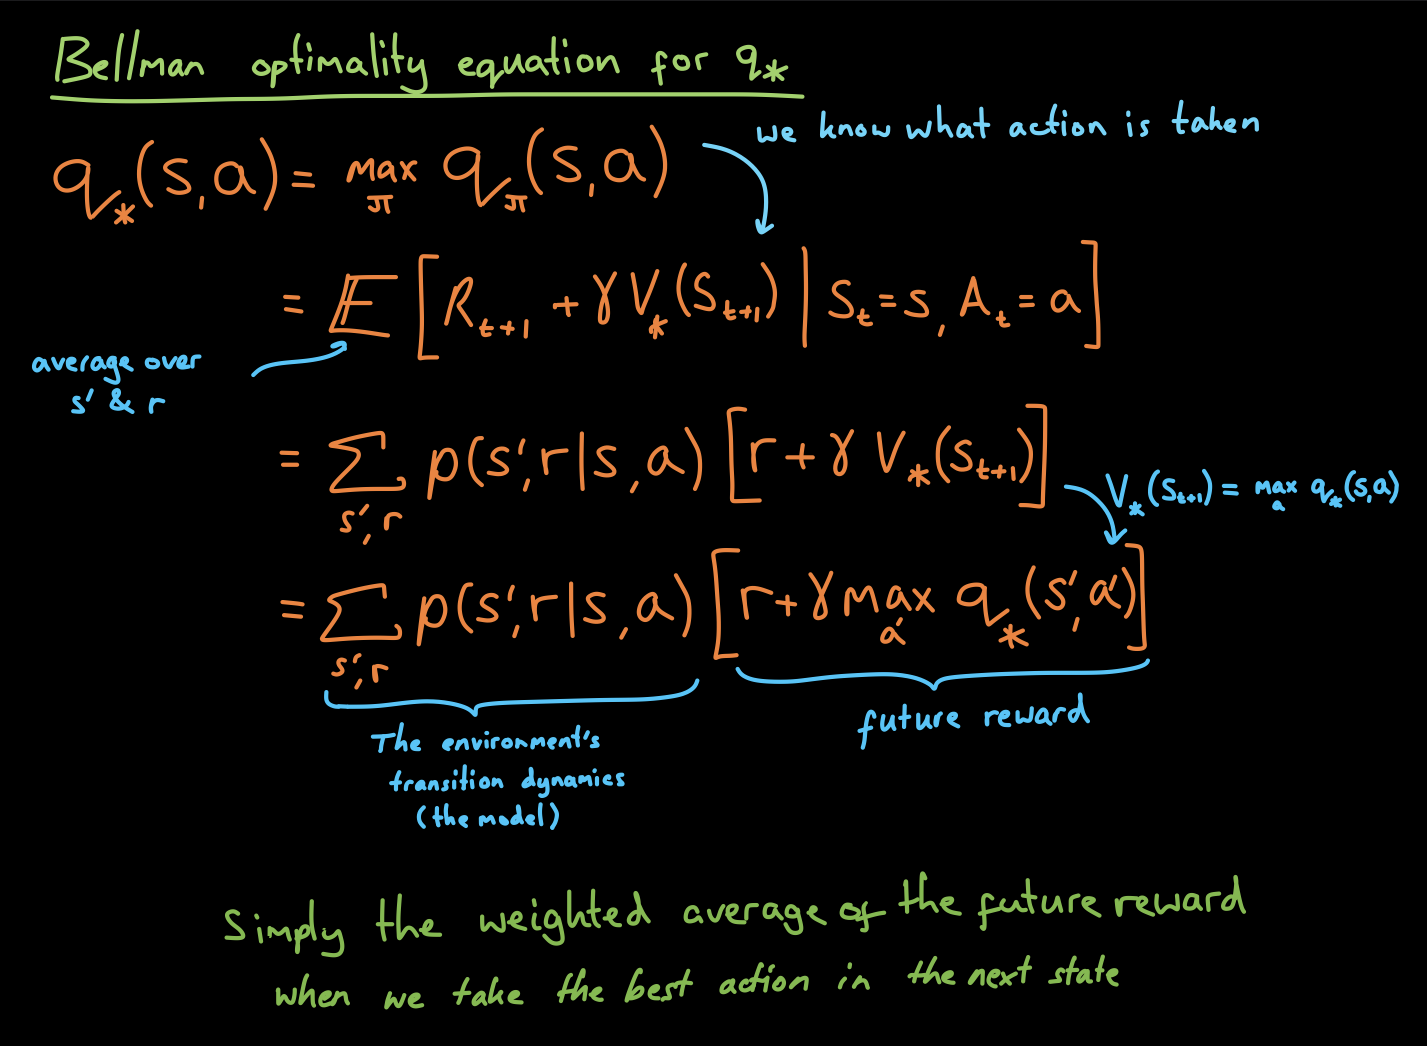 Bellman optimality equation for q_*
we know what action is taken
q_*(s,a) = max_π q_π(s,a)
= 𝔼[R_{t+1} + γ V_*(S_{t+1}) | S_t = s, A_t = a]
average over
s' & r
= Σ_{s',r} p(s',r|s,a) [r + γ V_*(S_{t+1})]
V_*(S_{t+1}) = max_a q_*(s,a)
= Σ_{s',r} p(s',r|s,a) [r + γ max_{a'} q_*(s',a')]
future reward
The environment's
transition dynamics
(the model)
Simply the weighted average of the future reward
when we take the best action in the next state